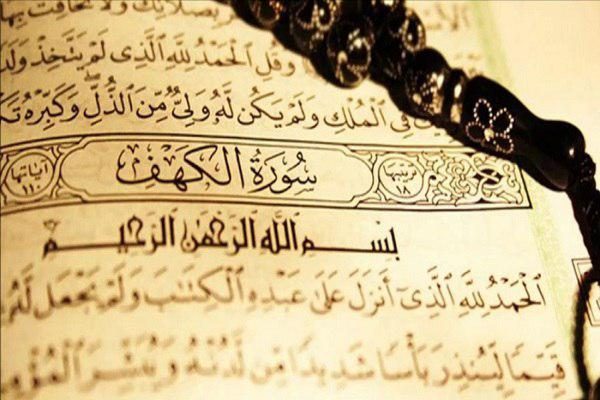 الأسماء ولا تخافت بها
وقل الحمد لله الذي لم يتخذ ولدا
في الملك ولم يكن له ولي من الذل وكبره تك
ترتيبها ١٨ سورة الكهف آياتها ١١٠
بسم الله الرحمن الرحيم
الحمد لله الذي أنزل على عبده الكتاب ولم يجعل له
قيما لينذر بأسا شديدا من لدنه ويبشر المؤ